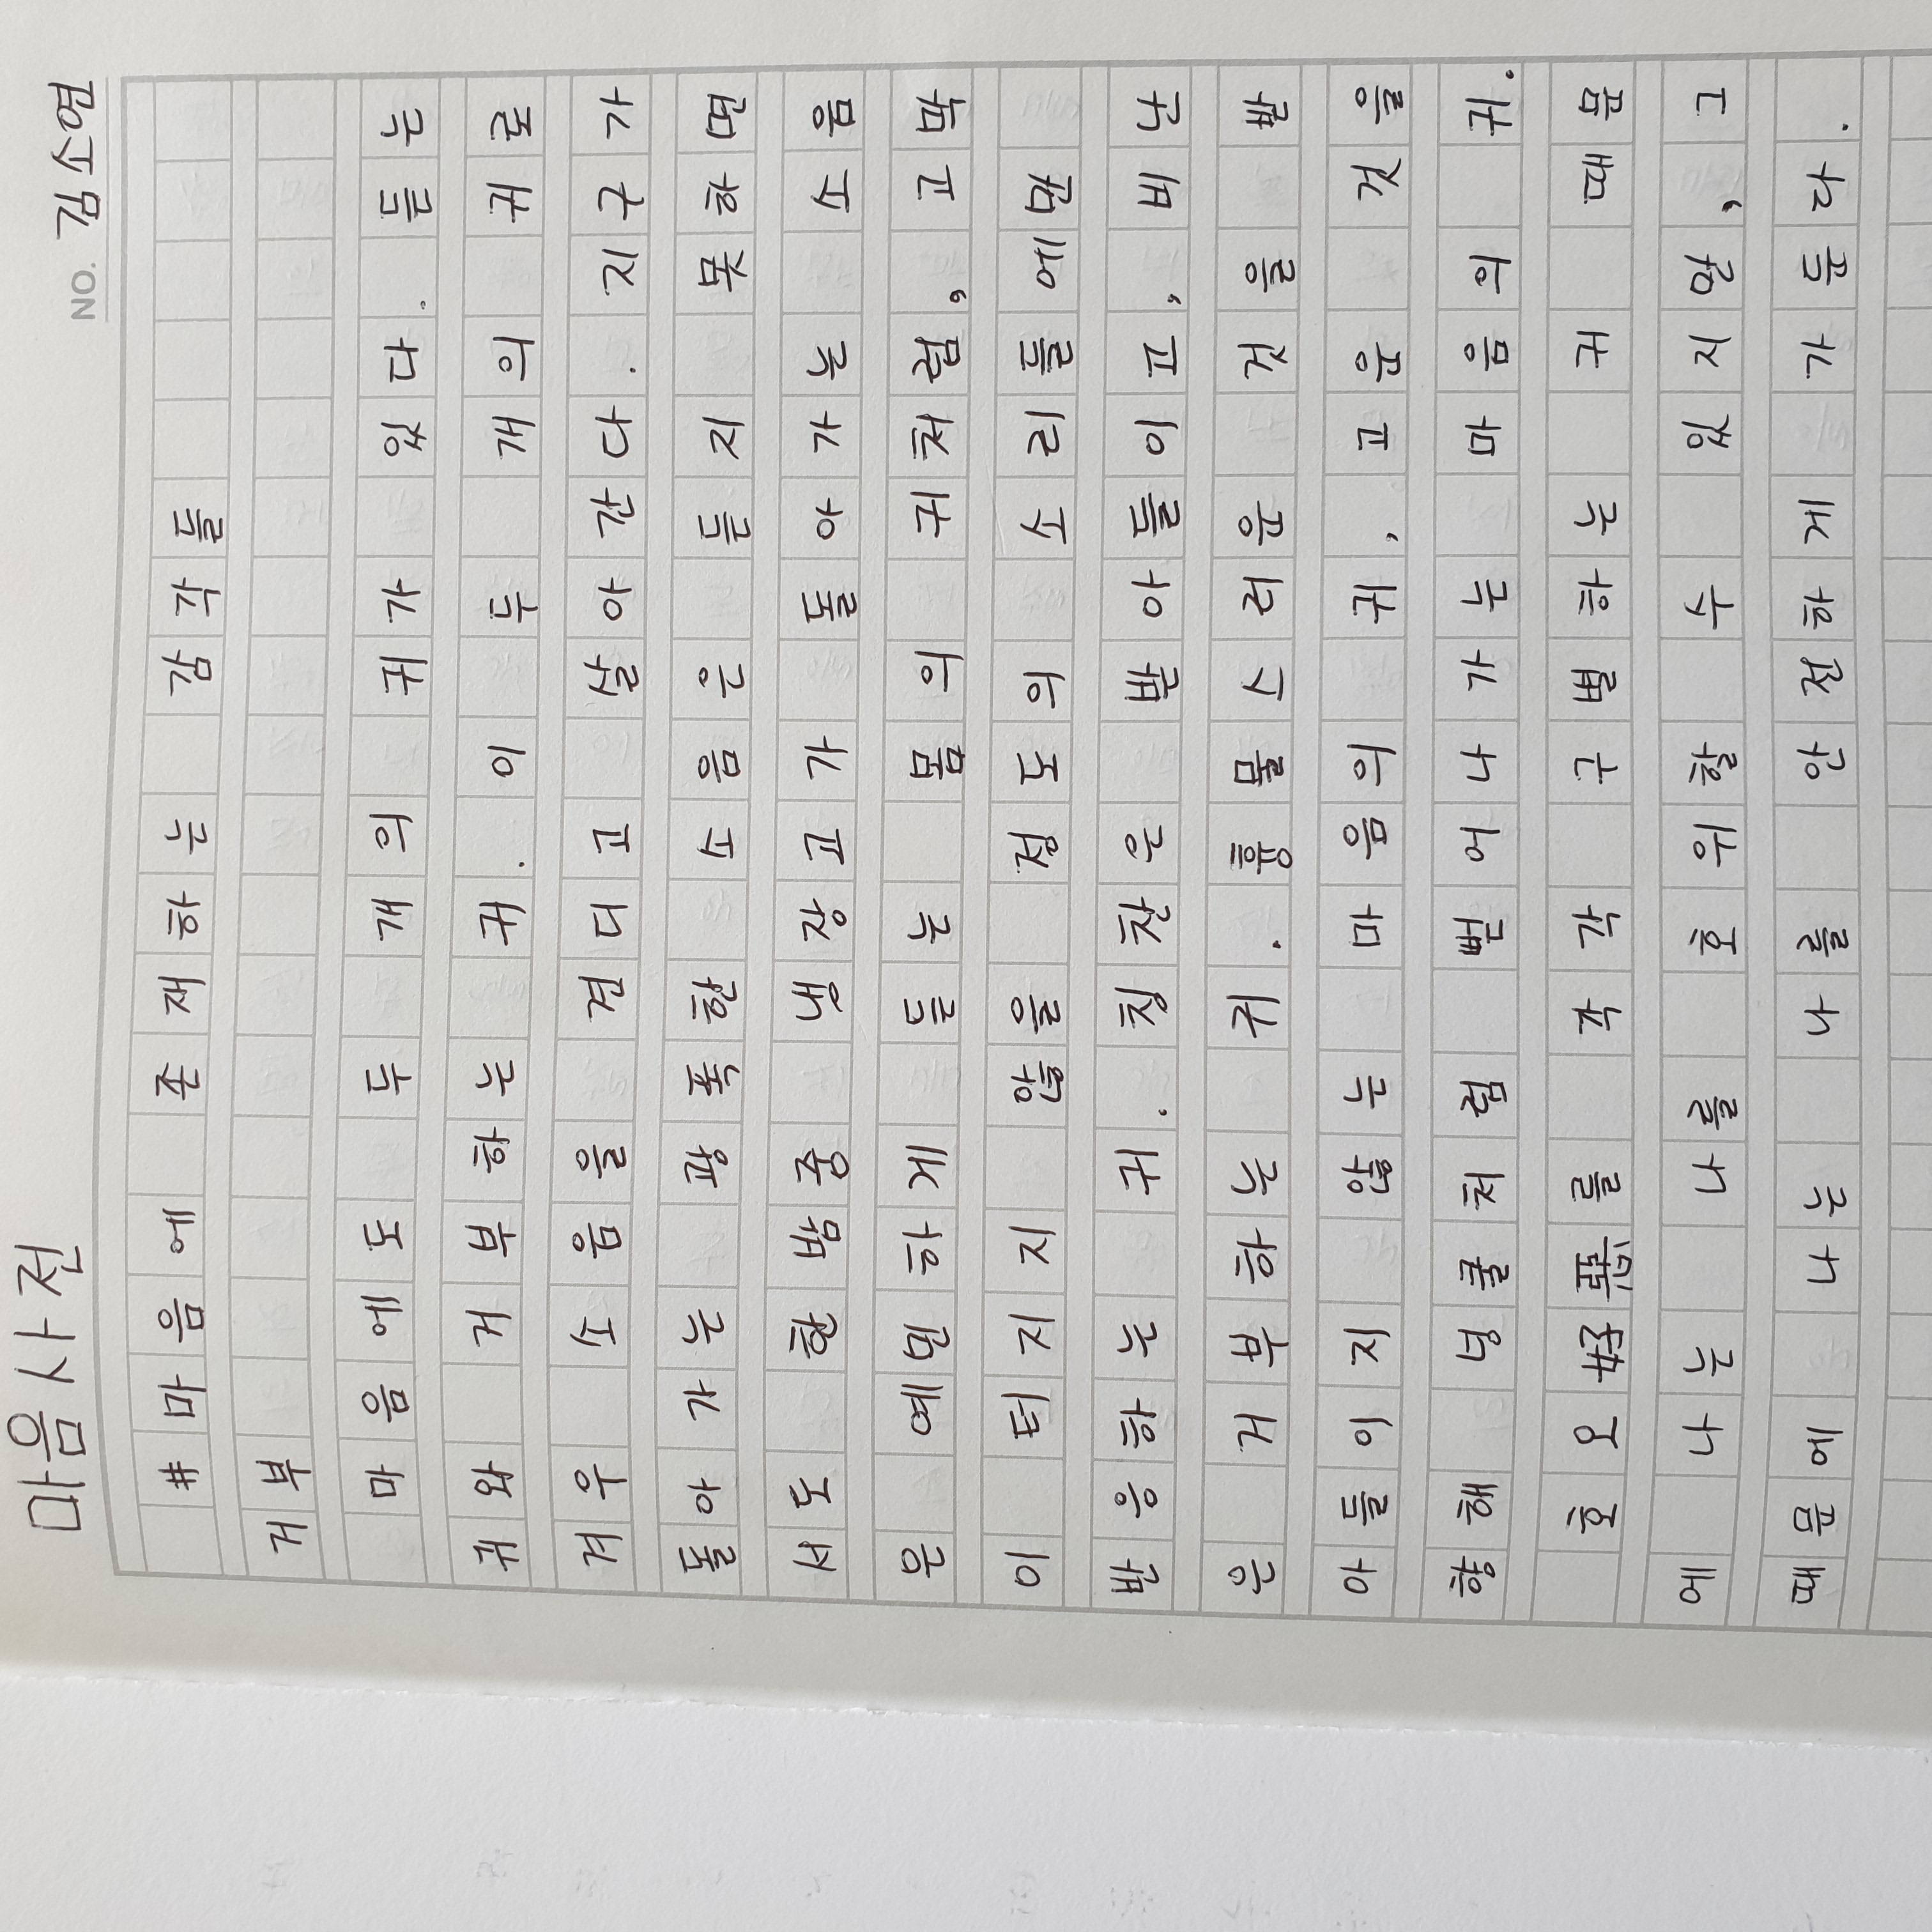 마음사전
NO. 김소연
#마음에 존재하는 감각들
거부
마음에도 두 개의 귀가 있다. 듣는
귀와 거부하는 귀. 이 두 개의 귀로
겨우 소음을 견디고 살아간다. 지구가
돌아가는 광폭한 소음은 듣지 못하면
서도 한밤중 냉장고가 돌아가는 소음
은 예민하게 듣는 몸의 귀처럼, 고막
이 터지지 않을 정도의 소리들에만
반응하는 귀. 칭찬은 받아들이고, 비난
은 거부하는 귀. 흉물스러운 것을 받
아들이지 않는 마음의 귀, 고운 것을
향해 넝쿨처럼 뻗어나가는 마음의 귀.
호오好惡를 각각 구별하는 귀 때문
에 나는 나를 호위할 수 있지만, 그
때문에 나는 나를 안전하게 가둔다.